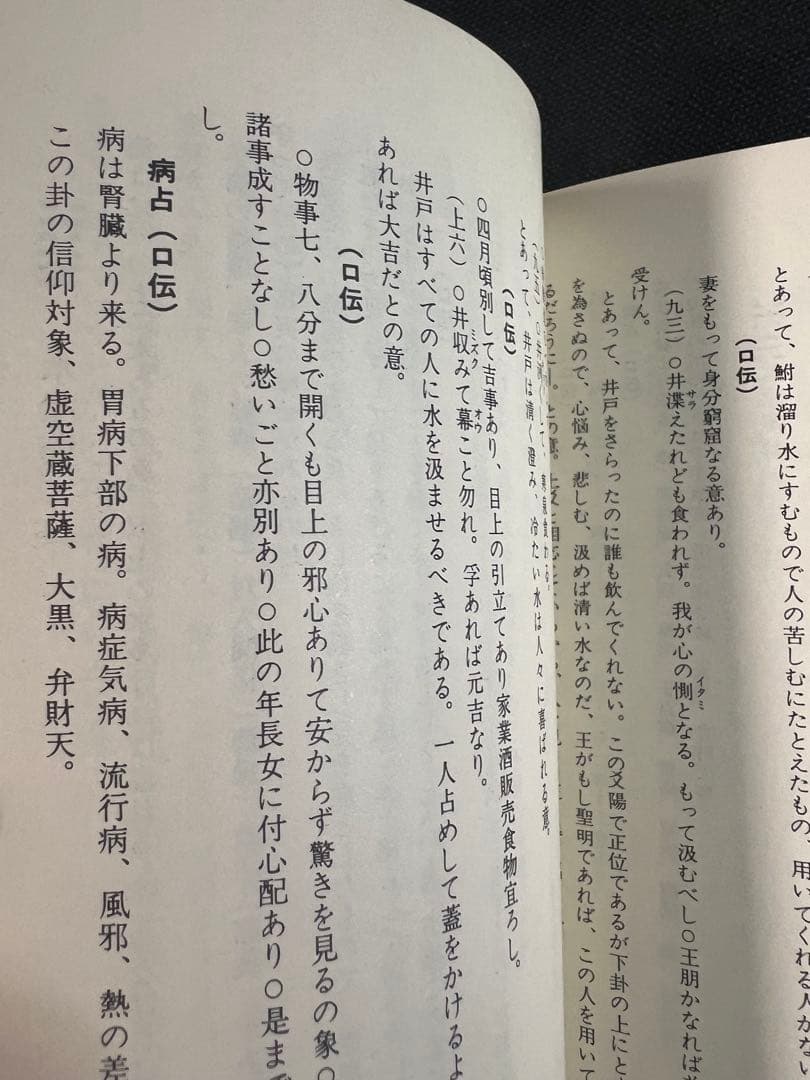 とあって、鮒は溜り水にすむもので人の苦しむにたとえたもの、用いてくれる人がない
(口伝)
妻をもって身分窮窟なる意あり。
(九三)○井渫えたれども食われず。我が心の惻となる。もって汲むべし○王明かなれば並
サラ
イタミ
受けん。
とあって、井戸をさらったのに誰も飲んでくれない。この爻陽で正位であるが下卦の上にと
を為さぬので、心悩み、悲しむ、汲めば清い水なのだ、王がもし聖明であれば、この人を用いて
るだろうに
とあって、井戸は清く澄み、冷たい水は人々に喜ばれる意
(口伝)
○四月頃別して吉事あり、目上の引立てあり家業酒販売食物宜ろし。
(上六)○井収みて幕こと勿れ。孚あれば元吉なり。
ミズク
オウ
井戸はすべての人に水を汲ませるべきである。一人占めして蓋をかけるよ
あれば大吉だとの意。
(口伝)
○物事七、八分まで開くも目上の邪心ありて安からず驚きを見るの象○
諸事成すことなし○愁いごと亦別あり○此の年長女に付心配あり○是まで
し。
病占(口伝)
病は腎臓より来る。胃病下部の病。病症気病、流行病、風邪、熱の差
この卦の信仰対象、虚空蔵菩薩、大黒、弁財天。